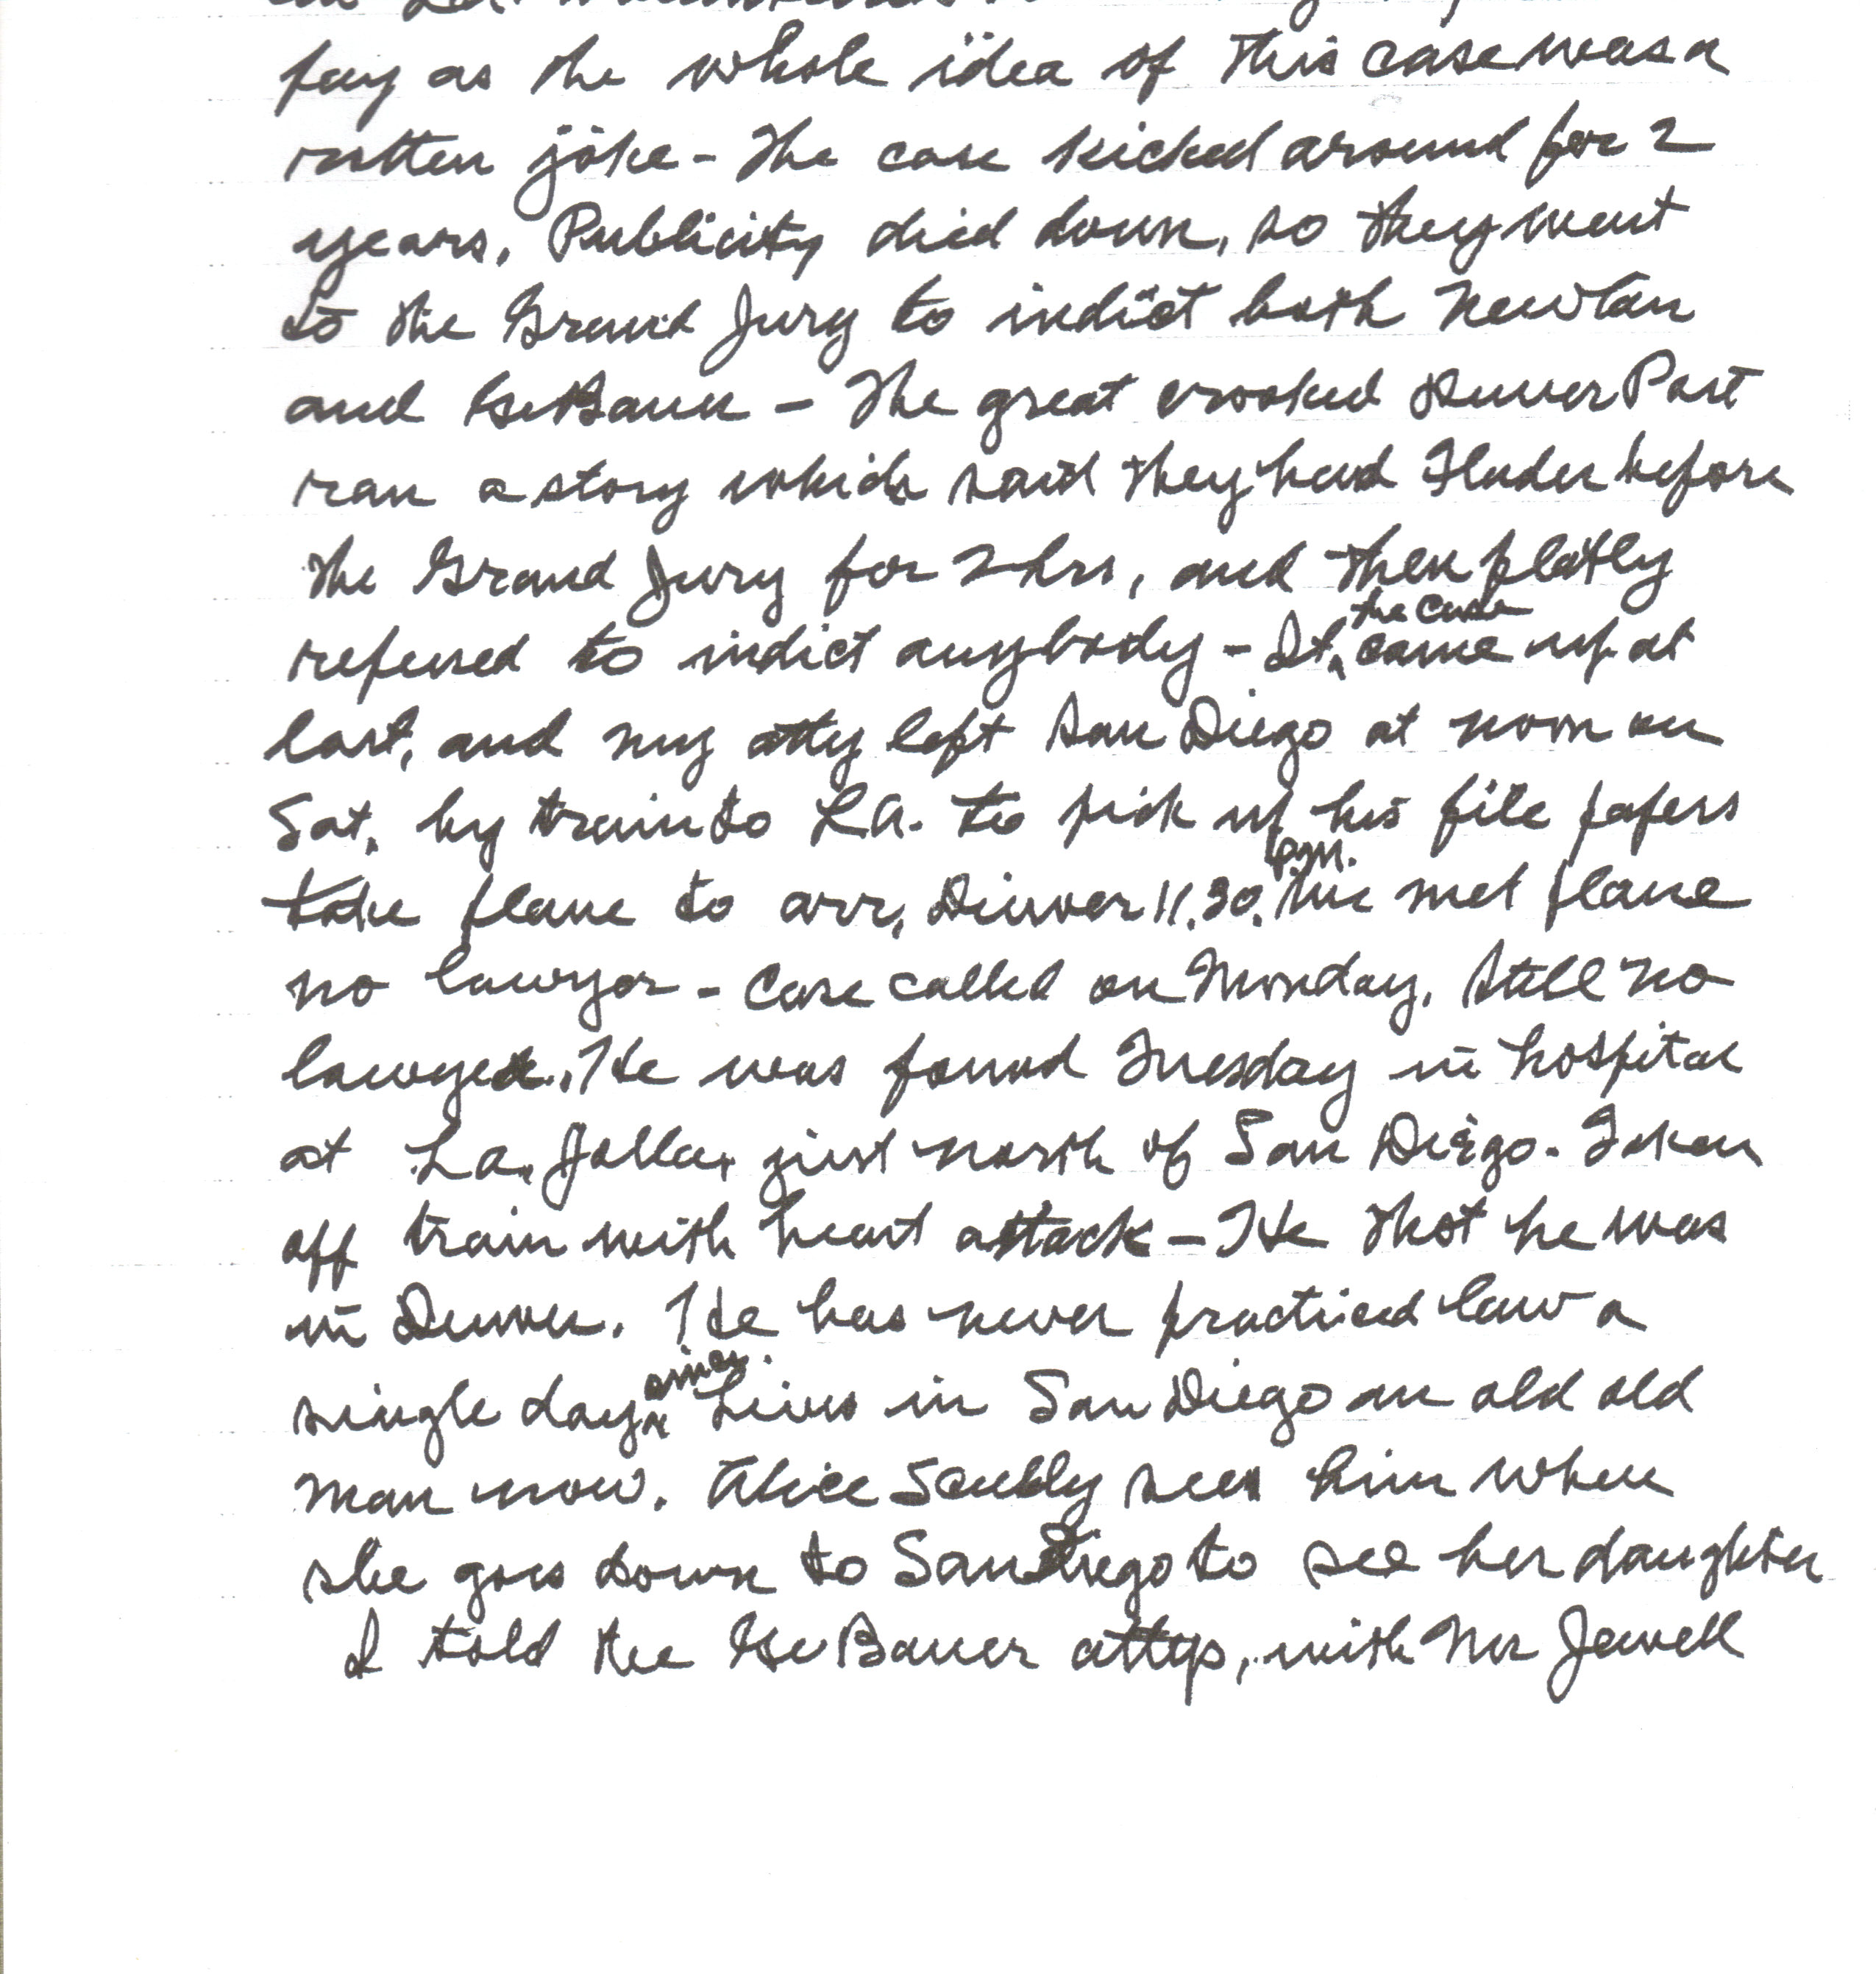 pay as the whole idea of this case was a
rotten joke - The case kicked around for 2
years. Publicity died down, so they went
to the Grand Jury to indict both Newton
and GeBauer - The great crooked Denver Post
ran a story which said they had Flader before
the Grand Jury for 2 hrs, and then flatly
refused to indict anybody - It, the case came up at
last, and my atty left San Diego at noon on
Sat. by train to LA. to pick up his file papers
take plane to arr, Denver 11.30. pm. We met plane
no lawyer - Case called on Monday. Still no
lawyer. He was found Tuesday in hospital
at La, Jolla, just north of San Diego. Taken
off train with heart attack - He thot he was
in Denver. He has never practiced law a
single day since. Lives in San Diego an old old
man now. Alice Scully sees him when
she goes down to San Diego to see her daughter
I told the GeBauer attys, with Mr Jewell